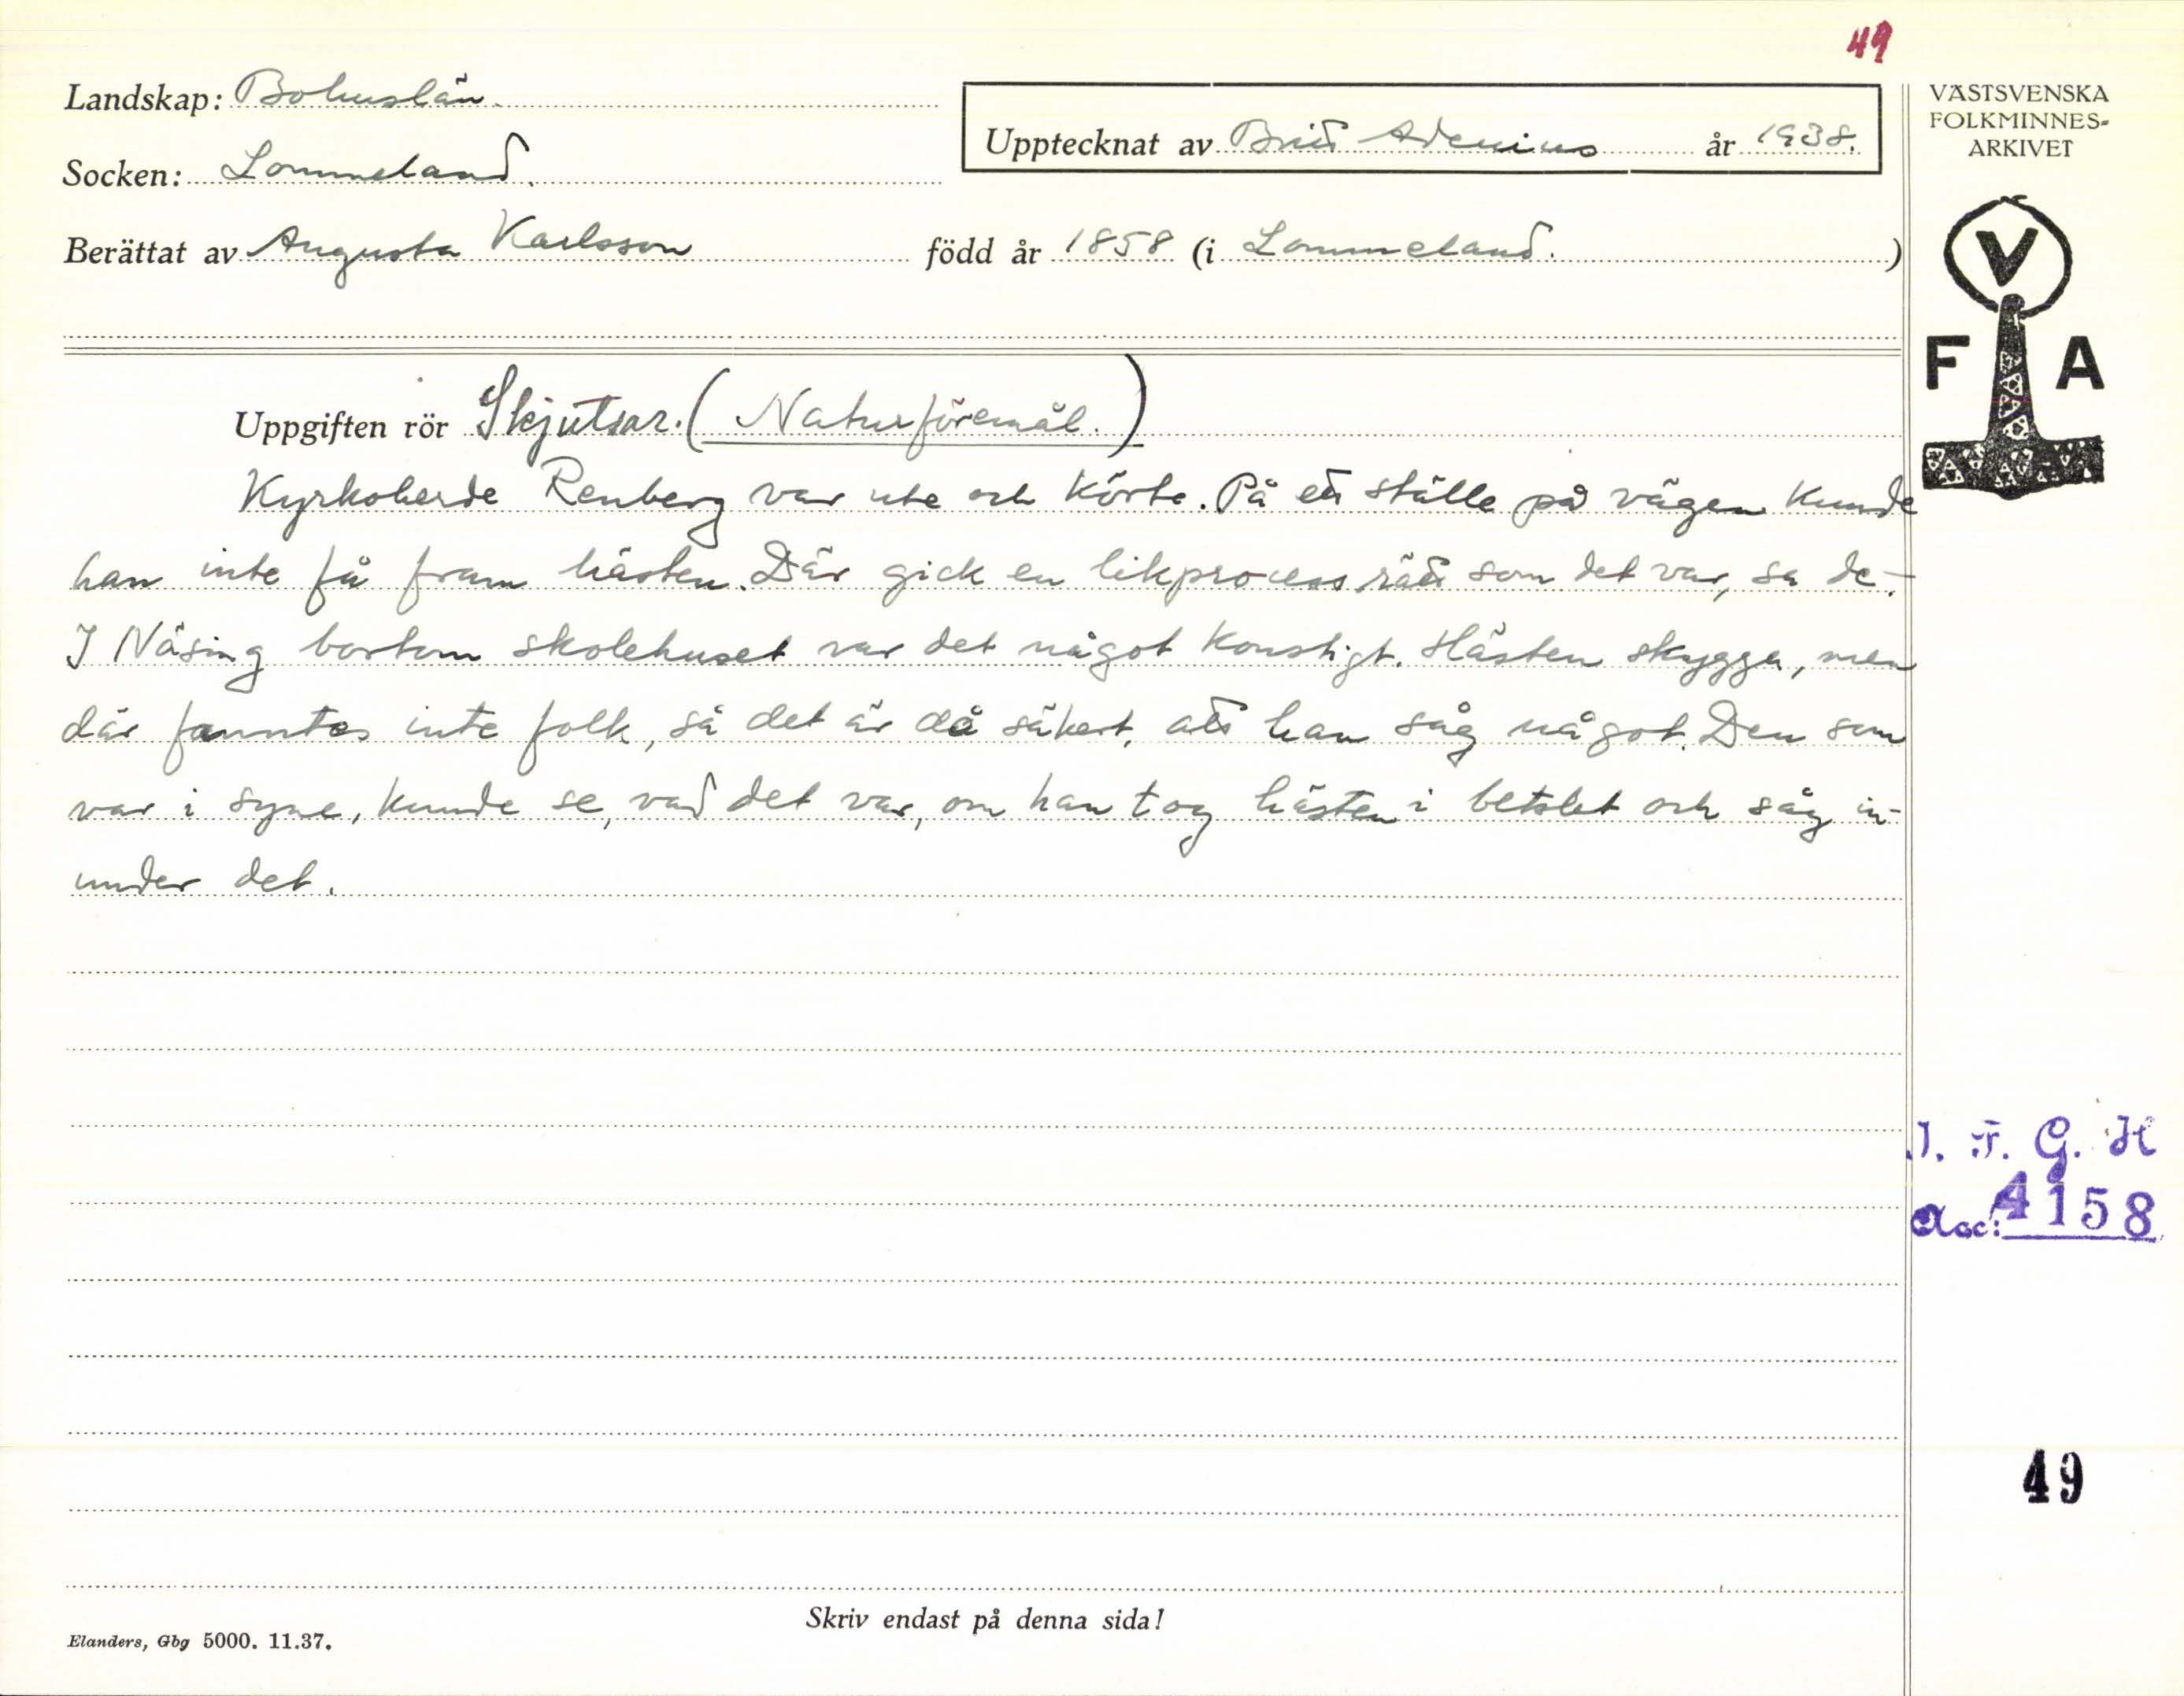 49
Landskap: Bohuslän.
Socken: Lommeland.
Upptecknat av Britt Adenius år 1938.
Berättat av Augusta Karlsson född år 1858 (i Lommeland.)
VÄSTSVENSKA
FOLKMINNES-
ARKIVET
V
F A
Uppgiften rör Skjutsar. (Naturföremål.)
Kyrkoherde Renberg var ute och körte. På ett ställe på vägen kunde
han inte få fram hästen. Där gick en likprocess rätt som det var, sa de.-
I Näsing bortom skolehuset var det något konstigt. Hästen skygga, men
där fanntes inte folk, så det är då säkert, att han såg något. Den som
var i syne, kunde se, vad det var, om han tog hästen i betslet och såg in-
under det.
I. F. G. H
Acc: 4158
49
Skriv endast på denna sida!
Elanders, Gbg 5000. 11.37.